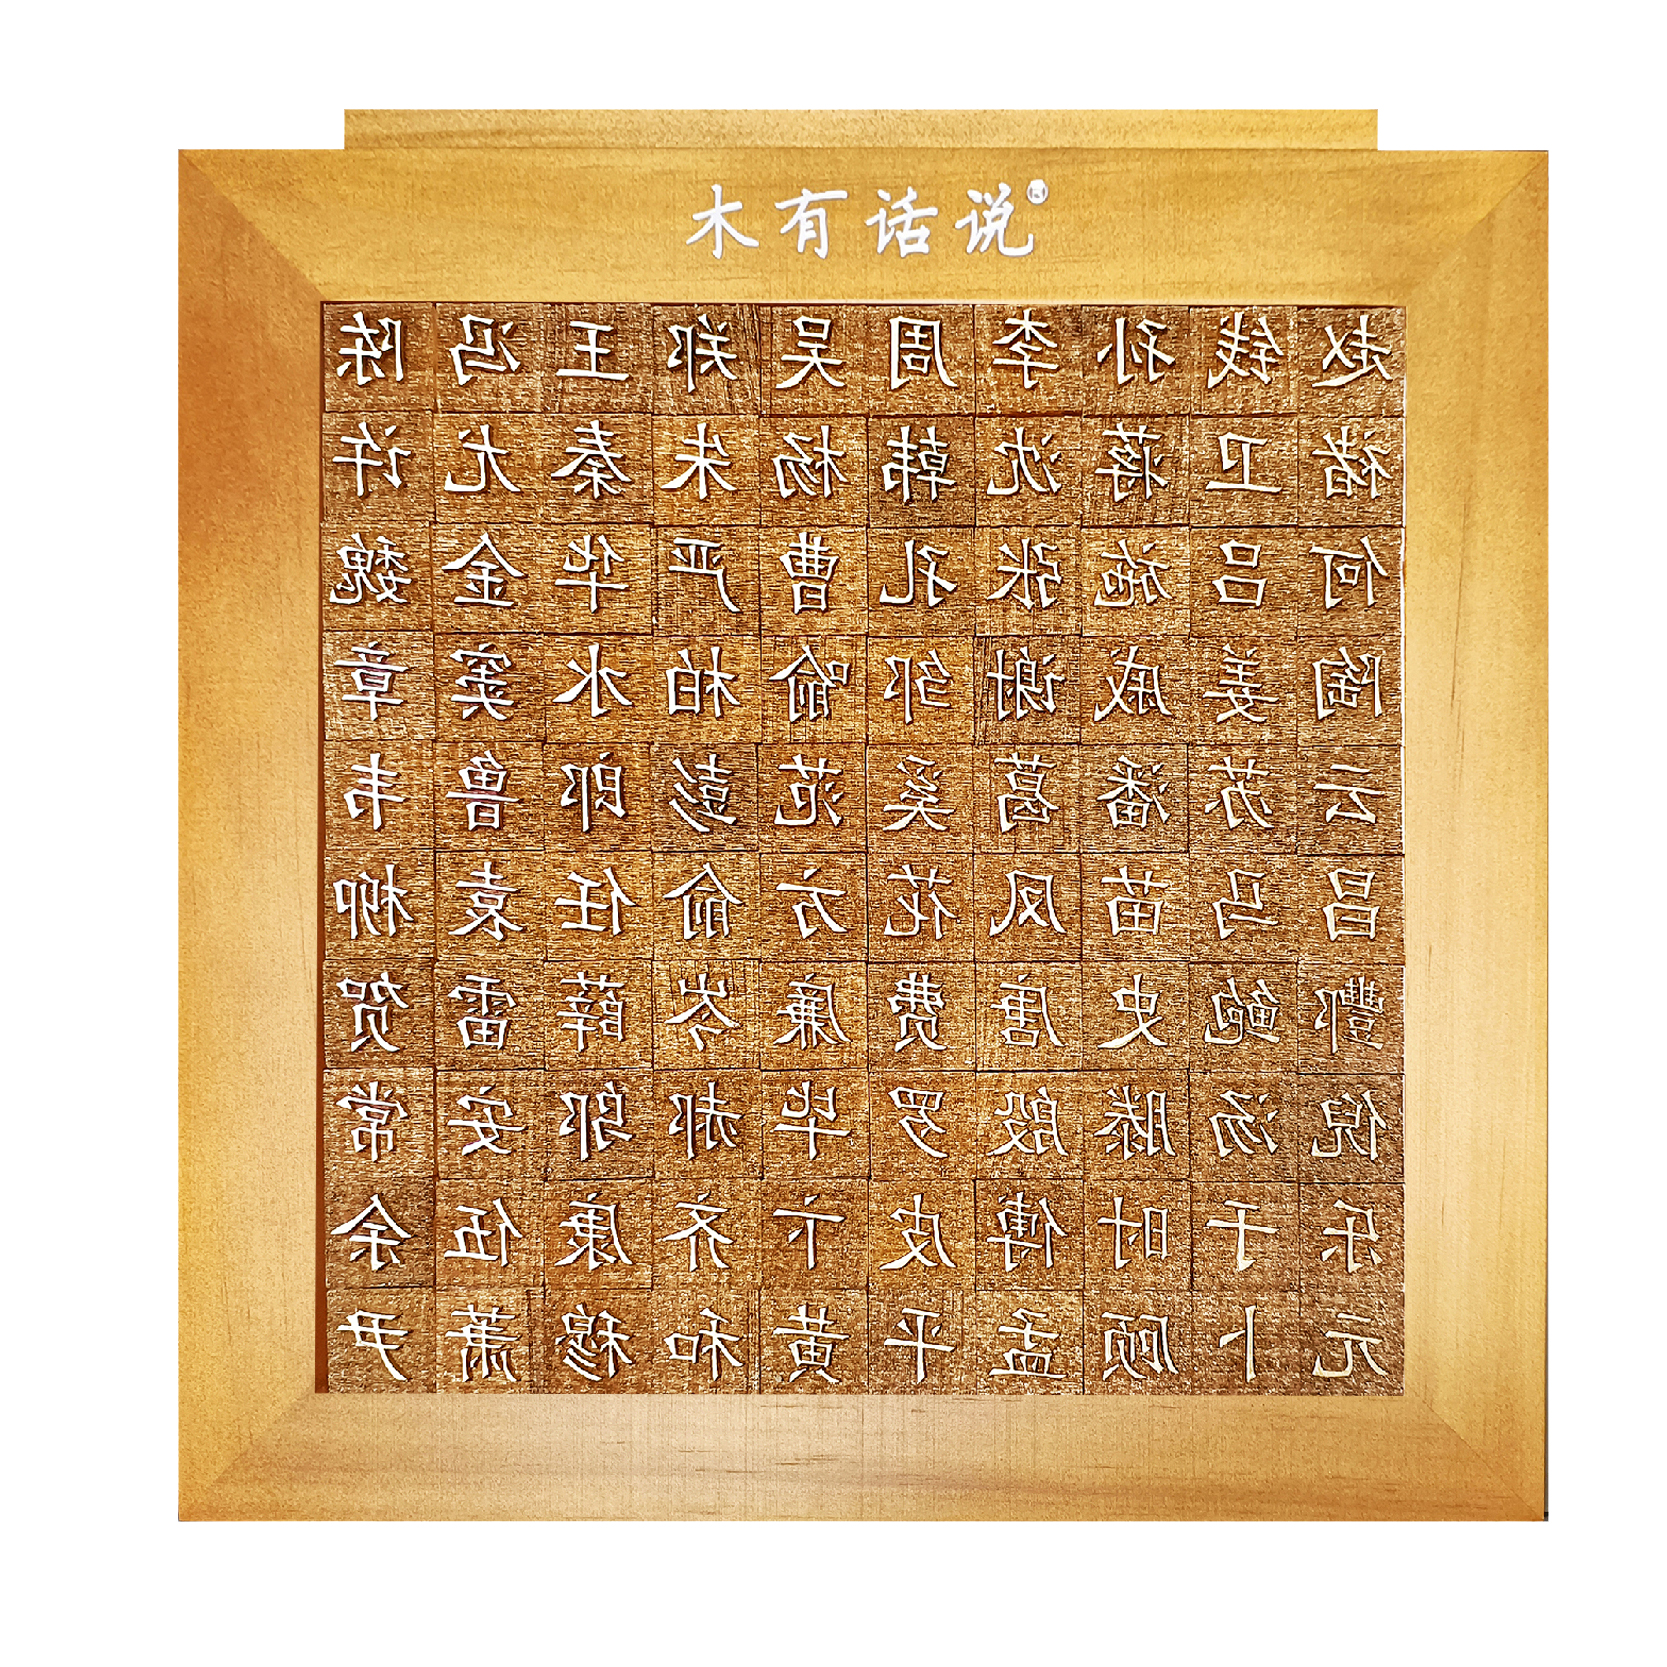 木有话说®
赵钱孙李周吴郑王冯陈
褚卫蒋沈韩杨朱秦尤许
何吕施张孔曹严华金魏
陶姜戚谢邹喻柏水窦章
云苏潘葛奚范彭郎鲁韦
昌马苗凤花方俞任袁柳
酆鲍史唐费廉岑薛雷贺
倪汤滕殷罗毕郝邬安常
乐于时傅皮卞齐康伍余
元卜顾孟平黄和穆萧尹